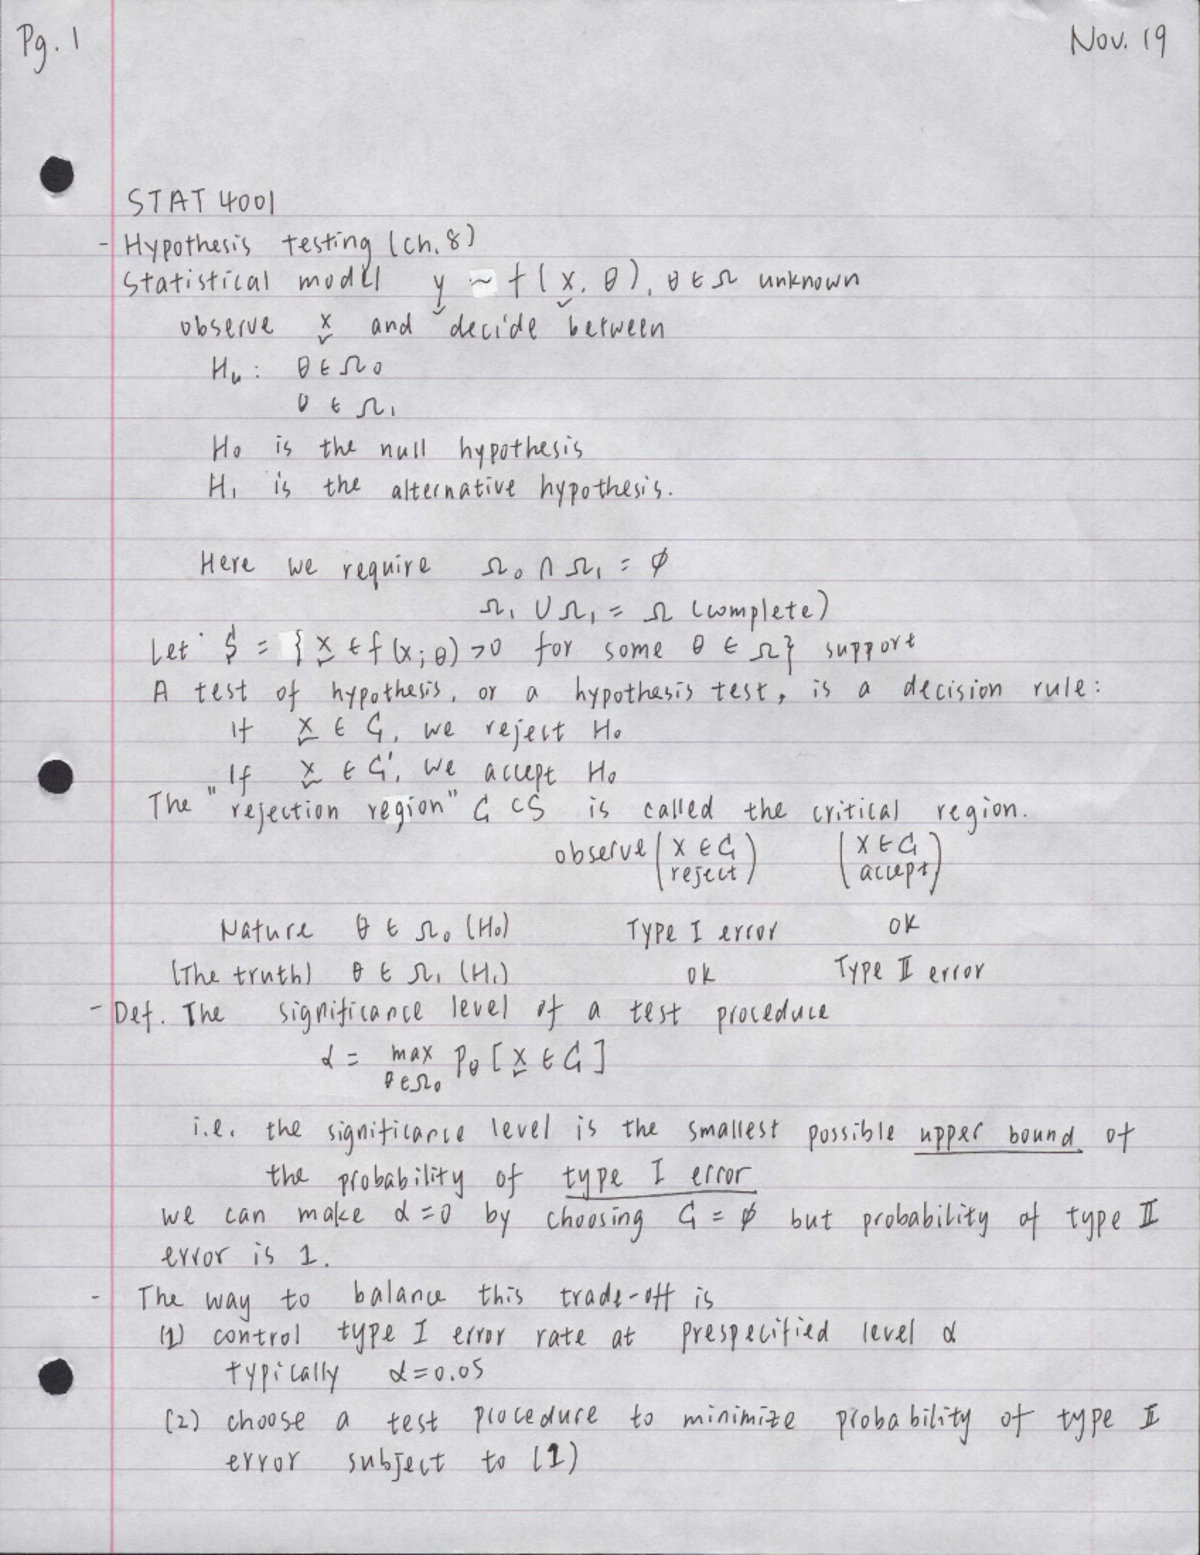 Pg. 1
Nov. 19
STAT 4001
- Hypothesis testing (ch. 8)
Statistical model y ~ f(x, θ), θ ∈ Ω unknown
observe x and decide between
H₀: θ ∈ Ω₀
θ ∈ Ω₁
H₀ is the null hypothesis
H₁ is the alternative hypothesis.
Here we require Ω₀ ∩ Ω₁ = ∅
Ω₁ ∪ Ω₁ = Ω (complete)
Let S = {x ∈ f(x; θ) >0 for some θ ∈ Ω} support
A test of hypothesis, or a hypothesis test, is a decision rule:
If x ∈ G, we reject H₀
If x ∈ G', we accept H₀
The "rejection region" G ⊂ S is called the critical region.
observe (X ∈ G reject) (X ∈ G accept)
Nature θ ∈ Ω₀ (H₀) Type I error ok
(The truth) θ ∈ Ω₁ (H₁) ok Type II error
- Def. The significance level of a test procedure
α = max P_θ [x ∈ G]
θ∈Ω₀
i.e. the significance level is the smallest possible upper bound of
the probability of type I error
we can make α = 0 by choosing G = ∅ but probability of type II
error is 1.
- The way to balance this trade-off is
(1) control type I error rate at prespecified level α
typically α = 0.05
(2) choose a test procedure to minimize probability of type II
error subject to (1)